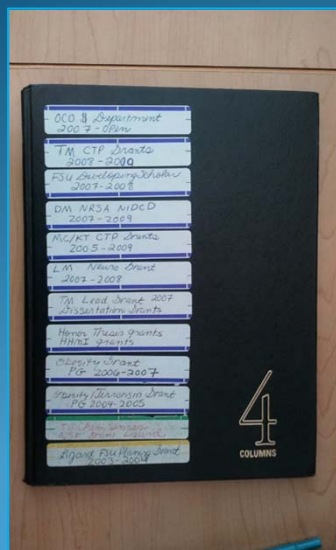 OCO & Department
2007 - Open
TM CTP Grants
2008 - 2010
FSU Developing Scholar
2007 - 2008
DM NRSA NIDCD
2007 - 2009
MC/KT CTP Grants
2005 - 2009
LM Neuro Grant
2007 - 2008
TM Lead Grant 2007
Dissertation Grants
Honor Thesis grants
HHMI grants
Obesity Grant
PG 2006-2007
/Terrorism Grant
PG 2004-2005
Grant
Planning Grant
2003-2004
4
COLUMNS